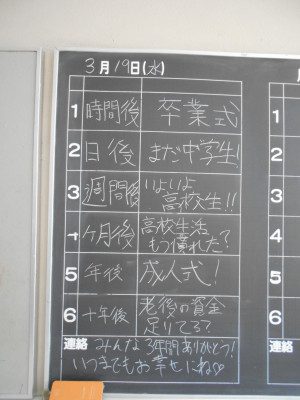 3月19日(水)
1 時間後 卒業式
2 日後 まだ中学生!
3 週間後 いよいよ
高校生!!
4 ヶ月後 高校生活
もう慣れた?
5 年後 成人式!
6 十年後 老後の資金
足りてる?
連絡 みんな3年間ありがとう!
いつまでもお幸せにね♡